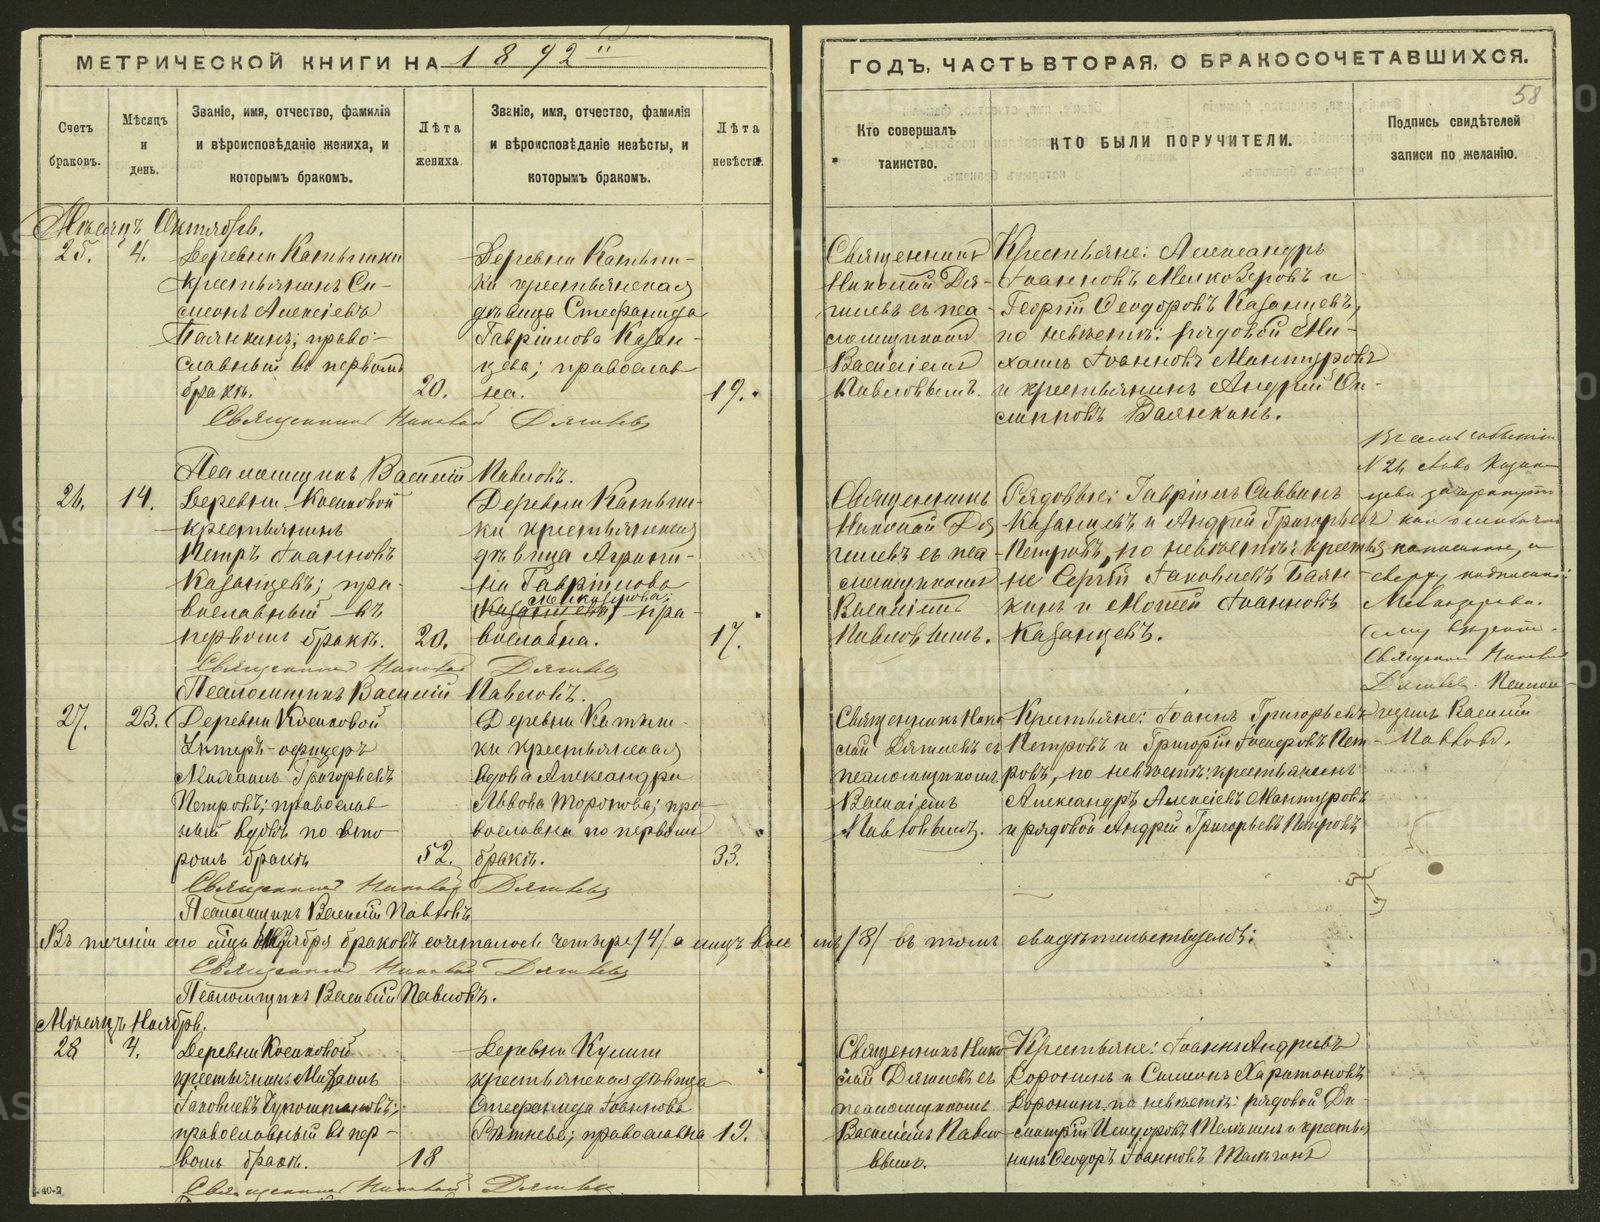 МЕТРИЧЕСКОЙ КНИГИ НА 1892
ГОДЪ, ЧАСТЬ ВТОРАЯ, О БРАКОСОЧЕТАВШИХСЯ.
58
Счетъ браковъ.
Мѣсяцъ и день.
Званіе, имя, отчество, фамилія
и вѣроисповѣданіе жениха, и
которымъ бракомъ.
Лѣта жениха.
Званіе, имя, отчество, фамилія
и вѣроисповѣданіе невѣсты, и
которымъ бракомъ.
Лѣта невѣсты.
Кто совершалъ
таинство.
КТО БЫЛИ ПОРУЧИТЕЛИ.
Подпись свидѣтелей
записи по желанію.
Мѣсяцъ Октябрь.
25. 4.
Деревни Катышки
крестьянинъ Си-
меонъ Алексіевъ
Баянкинъ; право-
славный въ первомъ
бракѣ. 20.
Деревни Катыш-
ки крестьянская
дѣвица Стефанида
Гавріилова Казан-
цева; православ
на. 19.
Священникъ
Николай Дя-
гилевъ съ пса-
ломщикомъ
Василіемъ
Павловымъ.
Крестьяне: Александръ
Іоанновъ Мелкозеровъ и
Георгій Ѳеодоровъ Казанцевъ,
по невѣстѣ: рядовой Ми-
хаилъ Іоанновъ Мантуровъ
и крестьянинъ Андрей
Баянкинъ.
Священникъ Николай Дягилевъ
Псаломщикъ Василій Павловъ.
26. 14.
Деревни Косиковой
крестьянинъ
Петръ Іоанновъ
Казанцевъ; пра-
вославный въ
первомъ бракѣ. 20.
Деревни Катыш-
ки крестьянская
дѣвица Агрипи-
на Гавріилова
Мелкозерова;
(Казанцева) пра-
вославна. 17.
Священникъ
Николай Дя
гилевъ съ пса-
ломщикомъ
Василіемъ
Павловымъ.
Рядовые: Гавріилъ Саввинъ
Казанцевъ и Андрей Григорьевъ
Петровъ, по невѣстѣ: крестья
не Сергій Іаковлевъ Баян-
кинъ и Моисей Іоанновъ
Казанцевъ.
N 26 слово Казан-
цева зачеркнуто
как ошибочно
написанное, а
сверху надписано:
Мелкозерова.
Священникъ Николай
Дягилевъ. Псалом-
щикъ Василій
Павловъ.
Священникъ Николай Дягилевъ
Псаломщикъ Василій Павловъ.
27. 23.
Деревни Косиковой
Унтеръ-офицеръ
Михаилъ Григорьевъ
Петровъ; православ
ный вдовъ по вто-
ромъ бракѣ 52.
Деревни Катыш-
ки крестьянская
вдова Александра
Львова Торопова; пра-
вославна по первомъ
бракѣ. 33.
Священникъ Нико
лай Дягилевъ съ
псаломщикомъ
Василіемъ
Павловымъ.
Крестьяне: Іоаннъ Григорьевъ
Петровъ и Григорій Іосифовъ Пет-
ровъ, по невѣстѣ: крестьянинъ
Александръ Алексіевъ Мантуровъ
и рядовой Андрей Григорьевъ Петровъ
Священникъ Николай Дягилевъ
Псаломщикъ Василій Павловъ
Въ теченіи сего м̃ца Октября браковъ сочеталось четыре /4/ а лицъ восемь /8/ въ томъ свидѣтельствуемъ:
Священникъ Николай Дягилевъ
Псаломщикъ Василій Павловъ.
Мѣсяцъ Ноябрь.
28 4.
Деревни Косиковой
крестьянинъ Михаилъ
Іаковлевъ
православный въ пер-
вомъ бракѣ. 18
Деревни Кулиги
крестьянская дѣвица
Стефанида Іоаннова
православна 19.
Священникъ Нико-
лай Дягилевъ съ
псаломщикомъ
Василіемъ Павло-
вымъ.
Крестьяне: Іоаннъ Андреевъ
Воронинъ и Симеонъ Харитоновъ
Воронинъ, по невѣстѣ: рядовой Ди-
митрій и крестья-
нинъ Ѳеодоръ Іоанновъ
Священникъ Николай Дягилевъ